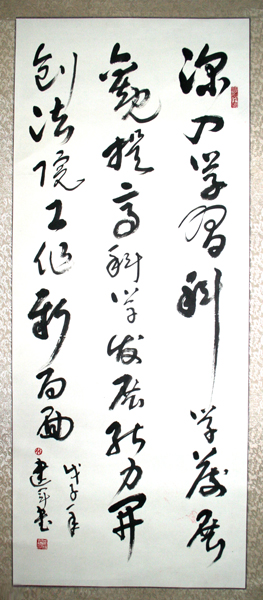 深入学习科学发展
观提高科学发展能力开
创法院工作新局面
戊子年
建军书